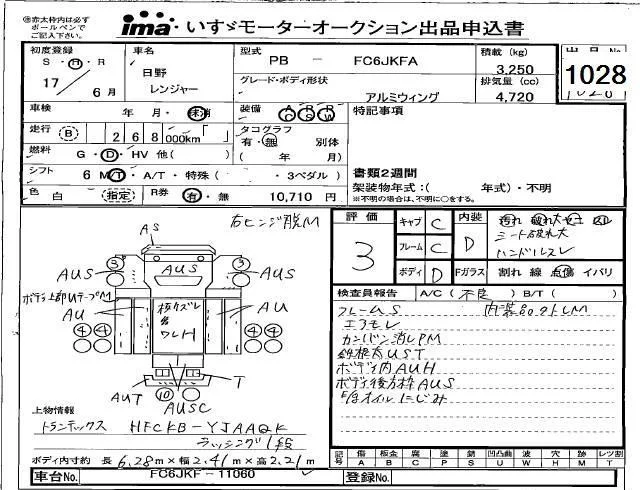 ㊟赤太枠内は必ず
ボールペンで
ご記入下さい。
ima いすゞモーターオークション出品申込書
初度登録 S・H・R 17 年 6月
車名 日野 レンジャー
型式 PB - FC6JKFA
グレード・ボディ形状 アルミウィング
積載 (kg) 3,250
排気量 (cc) 4,720
1028
車検 年 月・抹消
装備 A C P S P W
特記事項
走行 B 268,000km「 」
タコグラフ 有・無 別体
( 年 月)
燃料 G・D・HV 他( )
書類2週間
シフト 6 MT・A/T・特殊( ・3ペダル)
架装物年式:( 年式)・不明
※不明の場合は、不明に○をする。
色 白 (指定) R券 有・無 10,710 円
右ヒンジ脱M
評価 3
キャブ C 内装 D
フレーム C
ボディ D Fガラス 割れ 線 点傷 イバリ
シート破れ大
ハンドルスレ
AS
3 3
AUS AUS AUS
ボデー上部UテープM
AU AU
ワレH
4 4 4 4
T
AUT 10 AUSC
検査員報告 A/C (不良) B/T ( )
フレームS 内装品外しM
エアモレ
カンバン消しPM
鉄根太UST
ボディ内AUH
ボディ後方枠AUS
オイルにじみ
上物情報
トランテックス HFCKB-YJAAQK
ラッシング1段
ボディ内寸約 長 6.28m×幅 2.41m×高 2.21m
記号 傷 A 板金 B 腐 C 塗 P 錆 S 凹凸曲 U 波 W 穴 H 他 M レツ割 T
車台No. FC6JKF-11060
登録No.